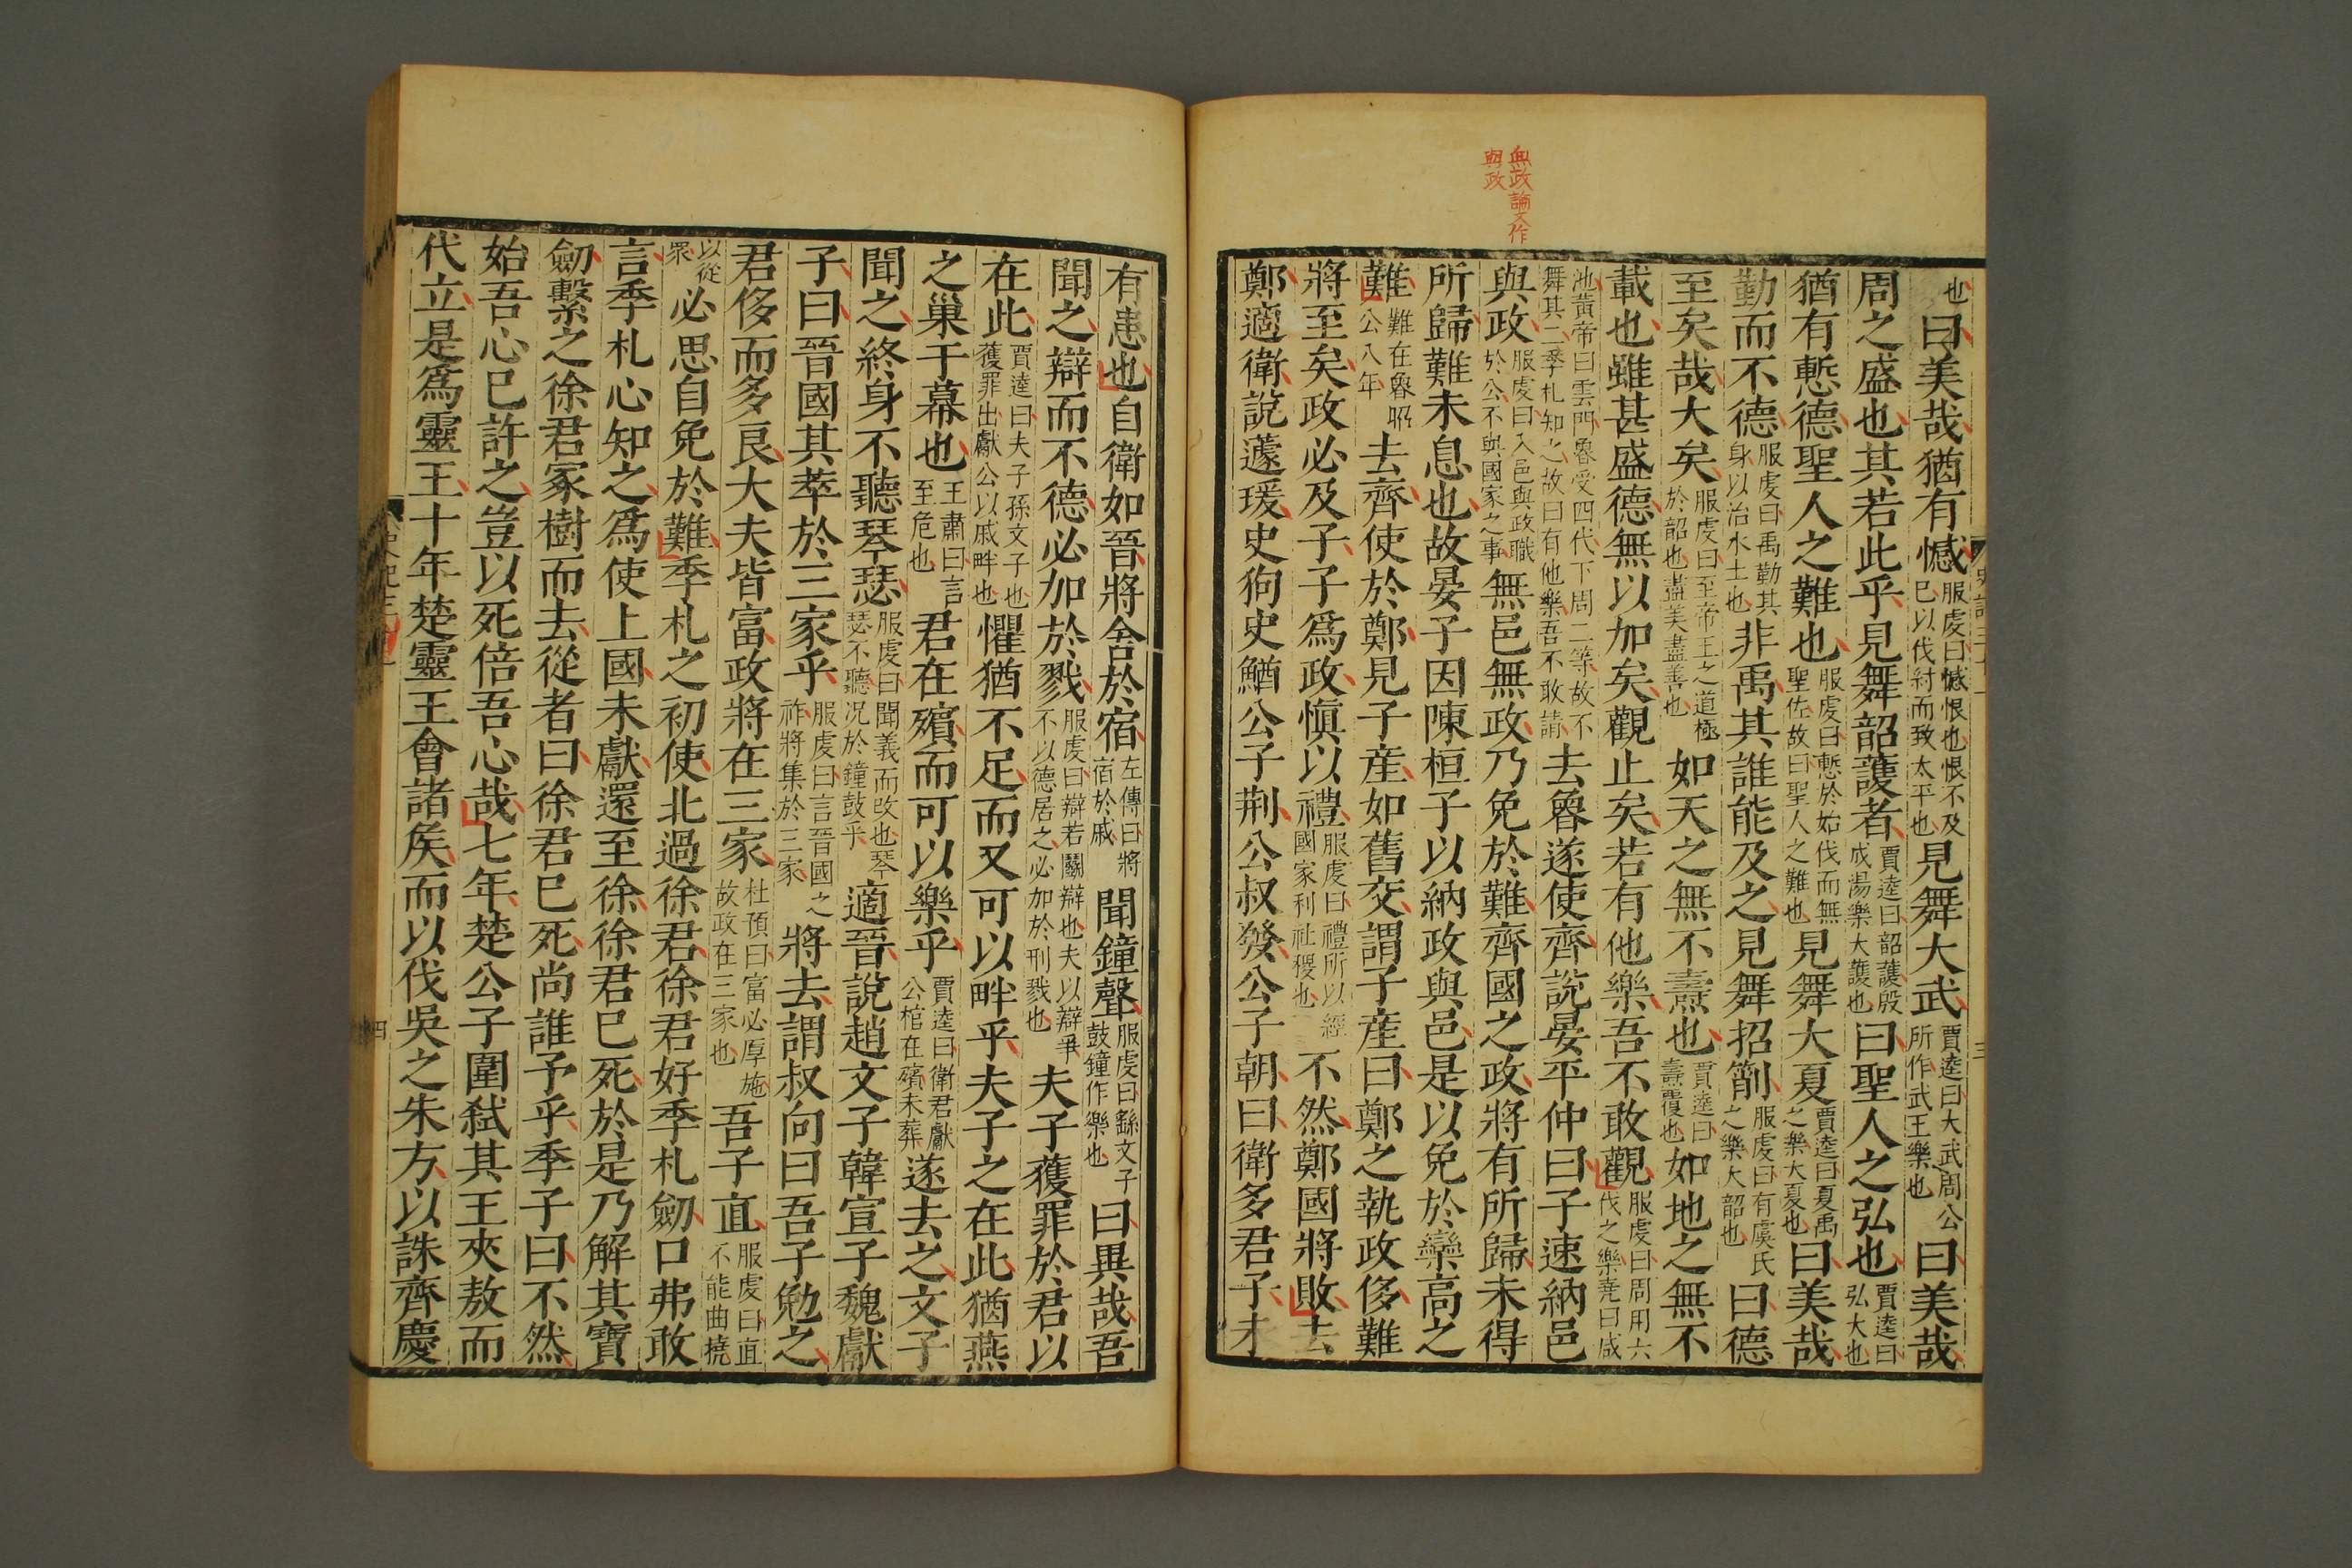 無政論文作
與政
也曰美哉猶有憾服虔曰憾恨也恨不及已以伐紂而致太平也見舞大武賈逵曰大武周公所作武王樂也曰美哉
周之盛也其若此乎見舞韶護者賈逵曰韶護殷成湯樂大護也曰聖人之弘也賈逵曰弘大也
猶有慙德聖人之難也服虔曰慙於始伐而無聖佐故曰聖人之難也見舞大夏賈逵曰夏禹之樂大夏也曰美哉
勤而不德服虔曰禹勤其身以治水土也非禹其誰能及之見舞招箾服虔曰有虞氏之樂大韶也曰德
至矣哉大矣服虔曰至帝王之道極於韶也盡美盡善也如天之無不燾也賈逵曰燾覆也如地之無不
載也雖甚盛德無以加矣觀止矣若有他樂吾不敢觀服虔曰周用六代之樂堯曰咸
池黃帝曰雲門魯受四代下周二等故不舞其二季札知之故曰有他樂吾不敢請去魯遂使齊說晏平仲曰子速納邑
與政服虔曰入邑與政職於公不與國家之事無邑無政乃免於難齊國之政將有所歸未得
所歸難未息也故晏子因陳桓子以納政與邑是以免於欒高之
難難在魯昭公八年去齊使於鄭見子產如舊交謂子產曰鄭之執政侈難
將至矣政必及子子爲政愼以禮服虔曰禮所以經國家利社稷也不然鄭國將敗去
鄭適衛說蘧瑗史狗史鰌公子荆公叔發公子朝曰衛多君子未
有患也自衛如晉將舍於宿左傳曰將宿於戚聞鐘聲服虔曰孫文子鼓鐘作樂也曰異哉吾
聞之辯而不德必加於戮服虔曰辯若鬭辯也夫以辯爭不以德居之必加於刑戮也夫子獲罪於君以
在此賈逵曰夫子孫文子也獲罪出獻公以戚畔也懼猶不足而又可以畔乎夫子之在此猶燕
之巢于幕也王肅曰言至危也君在殯而可以樂乎賈逵曰衛君獻公棺在殯未葬遂去之文子
聞之終身不聽琴瑟服虔曰聞義而改也琴瑟不聽况於鐘鼓乎適晉說趙文子韓宣子魏獻
子曰晉國其萃於三家乎服虔曰言晉國之祚將集於三家將去謂叔向曰吾子勉之
君侈而多良大夫皆富政將在三家杜預曰富必厚施故政在三家也吾子直服虔曰直不能曲橈
以從衆必思自免於難季札之初使北過徐君徐君好季札劒口弗敢
言季札心知之爲使上國未獻還至徐徐君已死於是乃解其寶
劒繫之徐君冢樹而去從者曰徐君已死尚誰予乎季子曰不然
始吾心已許之豈以死倍吾心哉七年楚公子圍弒其王夾敖而
代立是爲靈王十年楚靈王會諸矦而以伐吳之朱方以誅齊慶
四